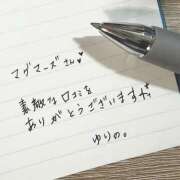 マグマーズさん♥
素敵な口コミを
ありがとうございます
ゆりの。